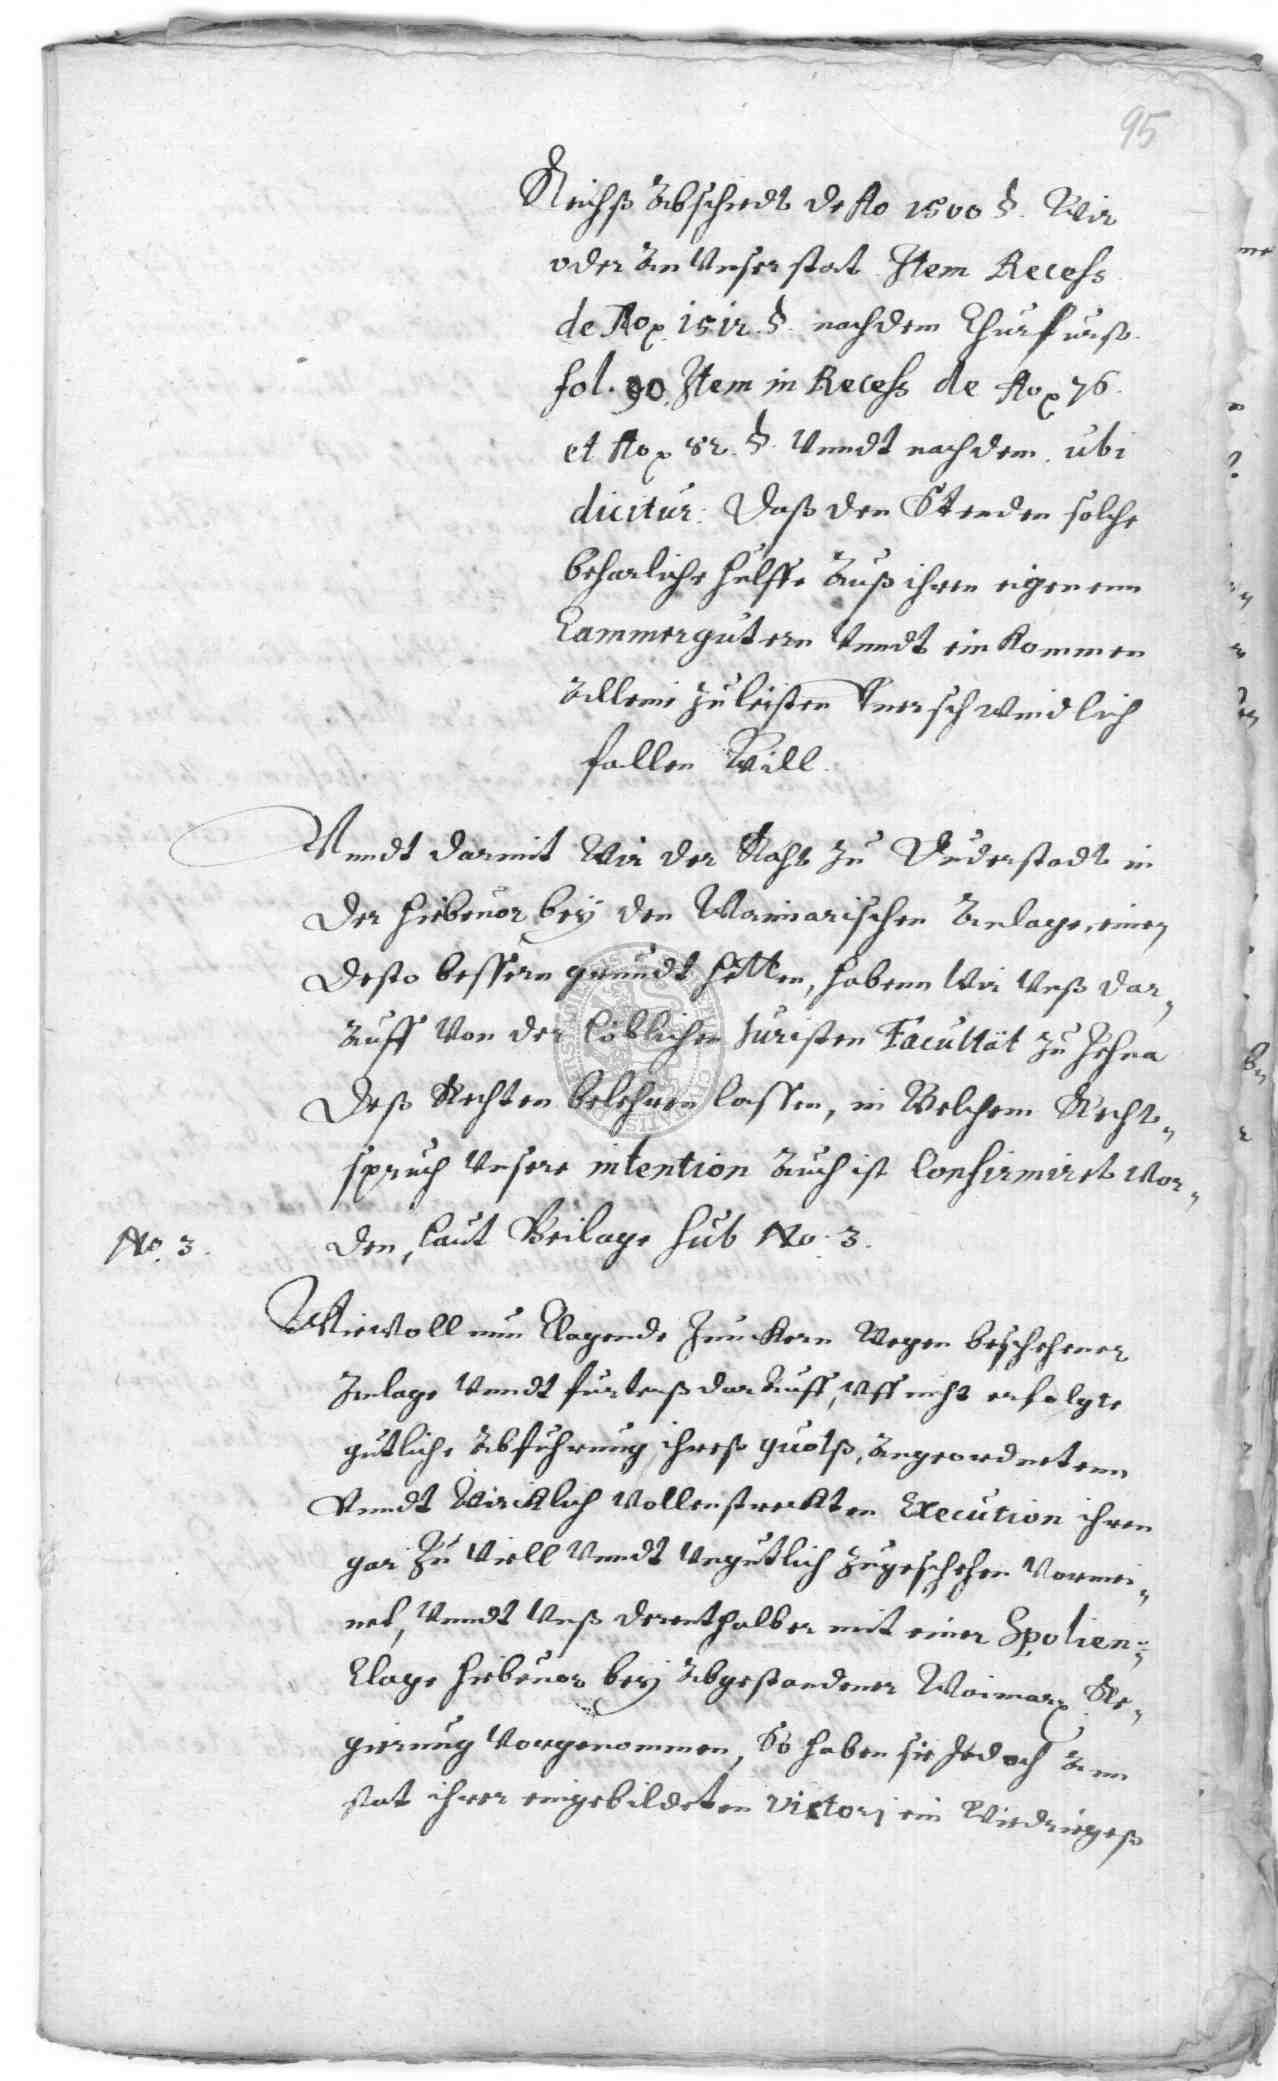 95
Reichß Abschiedt de Ao 1500 §. Wir
oder An Vnser stat Item Recess
de Ao. 1512. §. nachdem Churfurst.
fol. 90. Item in Recess de Ao. 76.
et Ao. 82. §. Vnndt nachdem. ubi
dicitur: Daß den Stenden solche
beharliche hulffe Auß ihren eigenenn
Cammergutern Vnndt einkommen
Allein zuleisten Vnerschwindlich
fallen Will.
Vnndt darmit Wir der Raht zu Duderstadt in
der hiebeuor bey den Waimarischen Anlage, einen
desto bessern grundt hetten, habenn Wir Vnß dar„
Auff Von der löblichen Juristen Facultät zu Jehna
deß Rechten belehren lassen, in Welchem Recht„
spruch Vnsere intention Auch ist confirmiret Wor„
No. 3.
den, laut Beilage sub No. 3.
Wiewoll nun Clagende Junckern Wegen beschehener
Anlage Vnndt furterß darAuff, Vff nicht erfolgte
gutliche Abfuhrung ihreß quotß, Angeordnetenn
Vnndt Wircklich Vollenstreckten Execution ihren
gar zu Viell Vnndt Vngutlich zugeschehen Vormei„
net, Vnndt Vnß derenthalber mit einer Spolien„
Clage hiebeuor bey Abgestandener Waimar. Re„
gierung Vorgenommen, So haben sie Jedoch Ann
stat ihrer eingebildeten victorj ein Wiedriegeß